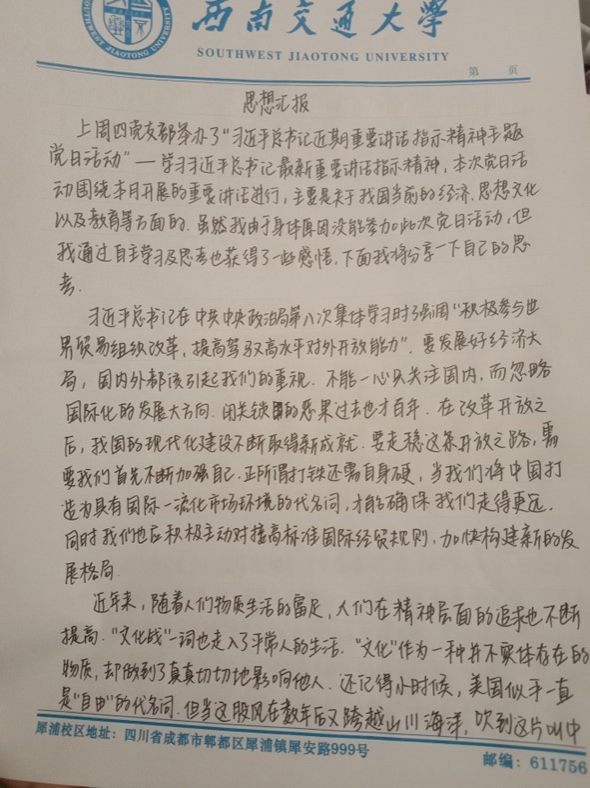 西南交通大学
SOUTHWEST JIAOTONG UNIVERSITY
第 页
思想汇报
上周四党支部举办了“习近平总书记近期重要讲话指示精神主题
党日活动”—学习习近平总书记最新重要讲话指示精神,本次党日活
动围绕本月开展的重要讲话进行,主要是关于我国当前的经济、思想文化
以及教育等方面的.虽然我由于身体原因没能参加此次党日活动,但
我通过自主学习及思考也获得了一些感悟,下面我将分享一下自己的思
考.
习近平总书记在中共中央政治局第八次集体学习时强调“积极参与世
界贸易组织改革,提高驾驭高水平对外开放能力”.要发展好经济大
局,国内外都该引起我们的重视.不能一心只关注国内,而忽略
国际化的发展大方向.闭关锁国的恶果过去也才百年.在改革开放之
后,我国的现代化建设不断取得新成就.要走稳这条开放之路,需
要我们首先不断加强自己.正所谓打铁还需自身硬,当我们将中国打
造为具有国际一流化市场环境的代名词,才能确保我们走得更远.
同时我们也应积极主动对接高标准国际经贸规则,加快构建新的发
展格局.
近年来,随着人们物质生活的富足,人们在精神层面的追求也不断
提高.“文化战”一词也走入了平常人的生活.“文化”作为一种并不实体存在的
物质,却做到了真真切切地影响他人.还记得小时候,美国似乎一直
是“自由”的代名词.但当这股风在数年后又跨越山川海洋,吹到这片叫中
犀浦校区地址:四川省成都市郫都区犀浦镇犀安路999号
邮编:611756